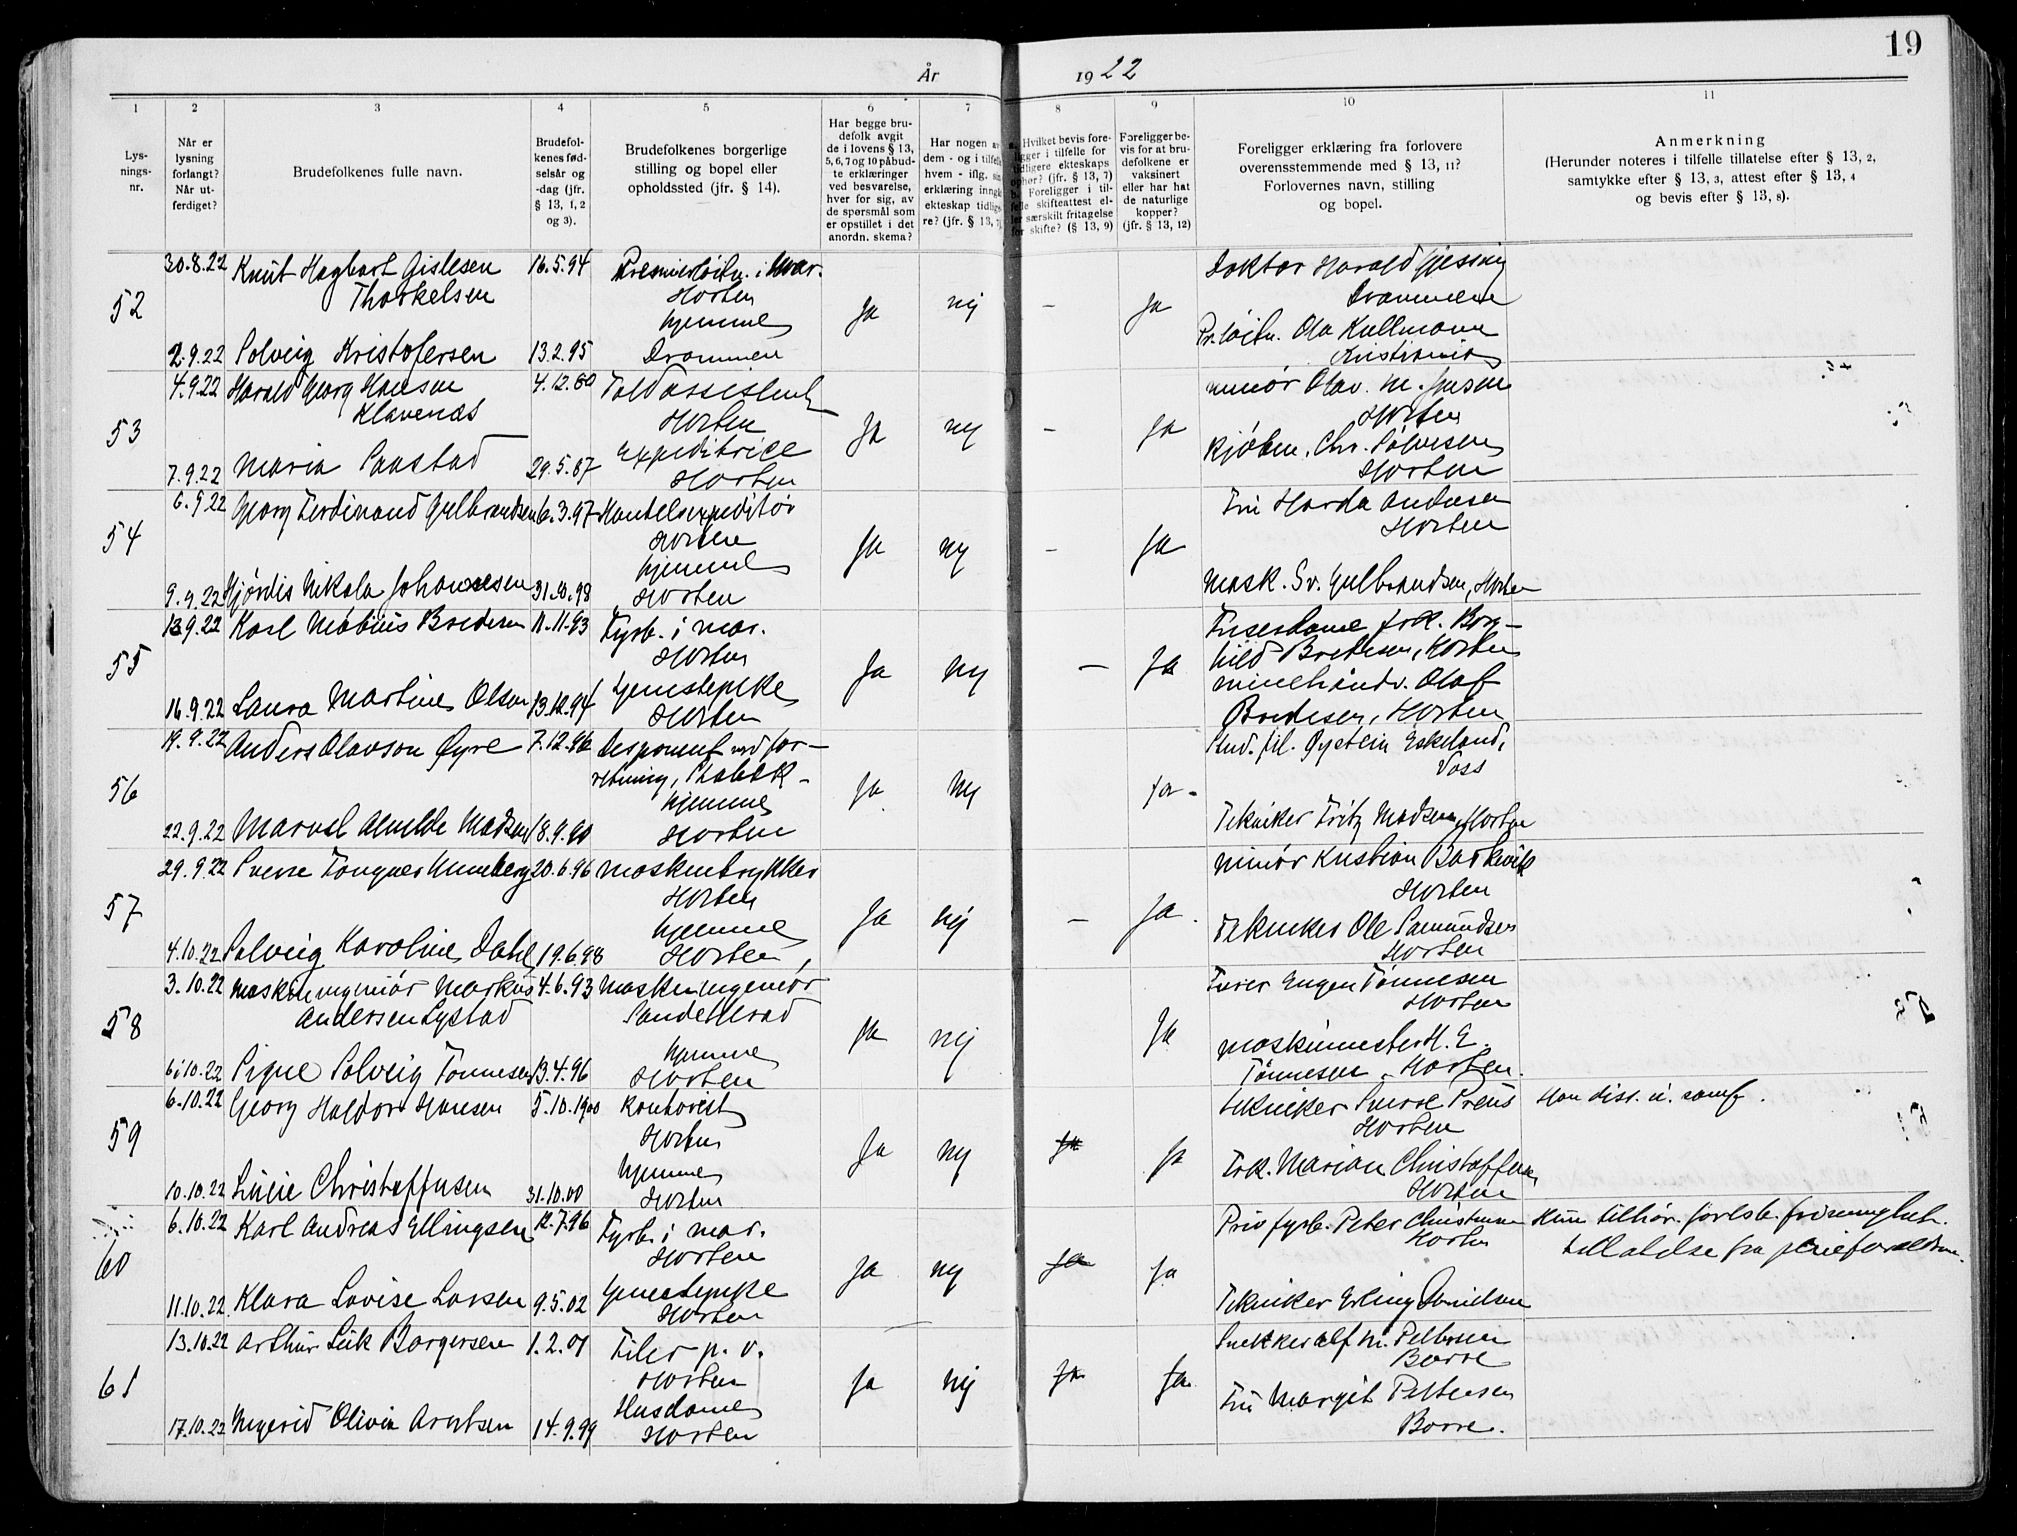 19
År 1922
1 2 3 4 5 6 7 8 9 10 11
Lys-
nings-
nr.
Når er
lysning
forlangt?
Når ut-
ferdiget?
Brudefolkenes fulle navn.
Brudefol-
kenes fød-
selsår og
-dag (jfr.
§ 13, 1, 2
og 3).
Brudefolkenes borgerlige
stilling og bopel eller
opholdssted (jfr. § 14).
Har begge bru-
defolk avgit
de i lovens § 13,
5, 6, 7 og 10 påbud-
te erklæringer
ved besvarelse,
hver for sig, av
de spørsmål som
er opstillet i det
anordn. skema?
Har nogen av
dem - og i tilfelle
hvem - iflg.
erklæring inngå
ekteskap tidlige-
re? (jfr. § 13, 7)
Hvilket bevis fore-
ligger i tilfelle for
tidligere ekteskaps
ophør? (jfr. § 13, 7)
Foreligger i til-
felle skifteattest el-
ler særskilt fritagelse
for skifte? (§ 13, 9)
Foreligger be-
vis for at bru-
defolkene er
vaksinert
eller har hat
de naturlige
kopper?
(jfr. § 13, 12)
Foreligger erklæring fra forlovere
overensstemmende med § 13, 11?
Forlovernes navn, stilling
og bopel.
Anmerkning
(Herunder noteres i tilfelle tillatelse efter § 13, 2,
samtykke efter § 13, 3, attest efter § 13, 4
og bevis efter § 13, 8).
52
30.8.22 Knut Hagbart Gislesen 16.5.94 Premierløitn. i mar. Doktor Harald Gjessing
Thorkelsen Horten Drammen
hjemme Ja nej - Ja Pr.løitn. Ola Kullmann
2.9.22 Solveig Kristofersen 13.2.95 Drammen Kristiania
53
4.9.22 Harald Georg Hansen 4.12.60 Toldassistent minør Olav M. Jensen
Klavenæs Horten Horten
Expeditrice Ja nej - Ja kjøbm. Chr. Sølvesen
7.9.22 Maria Saastad 29.5.67 Horten Horten
54
6.9.22 Georg Ferdinand Gulbrandsen 6.3.97 Handelsexpeditør Fru Harda Andersen
Horten Horten
hjemme Ja nej - Ja
9.9.22 Hjørdis Nikola Johannesen 31.10.98 Horten Mask. Sv. Gulbrandsen, Horten
55
13.9.22 Karl Møbius Bredesen 11.11.93 Fyrb. i mar. Friserdame frk. Borg-
Horten hild Bredesen, Horten
Ja nej - Ja minehåndv. Olaf
16.9.22 Laura Martine Olsen 13.12.94 Tjenestepike
Horten Bredesen, Horten
56
19.9.22 Anders Olavson Øyre 7.12.96 Disponent ved for- Stud. fil. Øystein Eskeland,
retning, Voss
hjemme Ja nej Ja -
22.9.22 Madsen 18.9.90 Horten Tekniker Fritz Madsen, Horten
57
29.9.22 Sverre Unneberg 20.6.96 maskintrykker minør Kristian Barkvik
Horten Horten
hjemme Ja nej - Ja. Tekniker Ole Samundsen
4.10.22 Solveig Karoline Dahl 19.6.98 Horten Horten
58
3.10.22 maskiningeniør Markus 4.6.93 maskiningeniør Furer Eugen Tønnesen
Andersen Lystad Sandeherad Horten
hjemme Ja nej Ja maskinmester H. E.
6.10.22 Signe Solveig Tønnesen 13.4.96 Horten Tønnesen, Horten.
59
6.10.22 Georg Haldor Hansen 5.10.1900 Kontorist tekniker Sverre Preus Han diss. u. samf.
Horten Horten
hjemme Ja nej Ja Ja Frk. Marian Christoffersen
10.10.22 Lucie Christoffersen 31.10.00 Horten Horten
60
6.10.22 Karl Andreas Ellingsen 12.7.96 Fyrb. i mar. Prov fyrb. Peter Christensen Hun tilhør.
Horten Horten tilladelse fra
Ja nej Ja Ja
11.10.22 Klara Lovise Larsen 9.5.02 Tjenestepike
Horten Tekniker Erling Danielsen
61
13.10.22 Arthur Leik Borgersen 1.2.01 Filer p. v. Snekker Alf M. Pettersen
Horten Borre
Husdame Ja nej Ja Ja Fru Margit Pettersen
17.10.22 Ingerid Olivia Arntsen 14.9.99 Horten Borre.